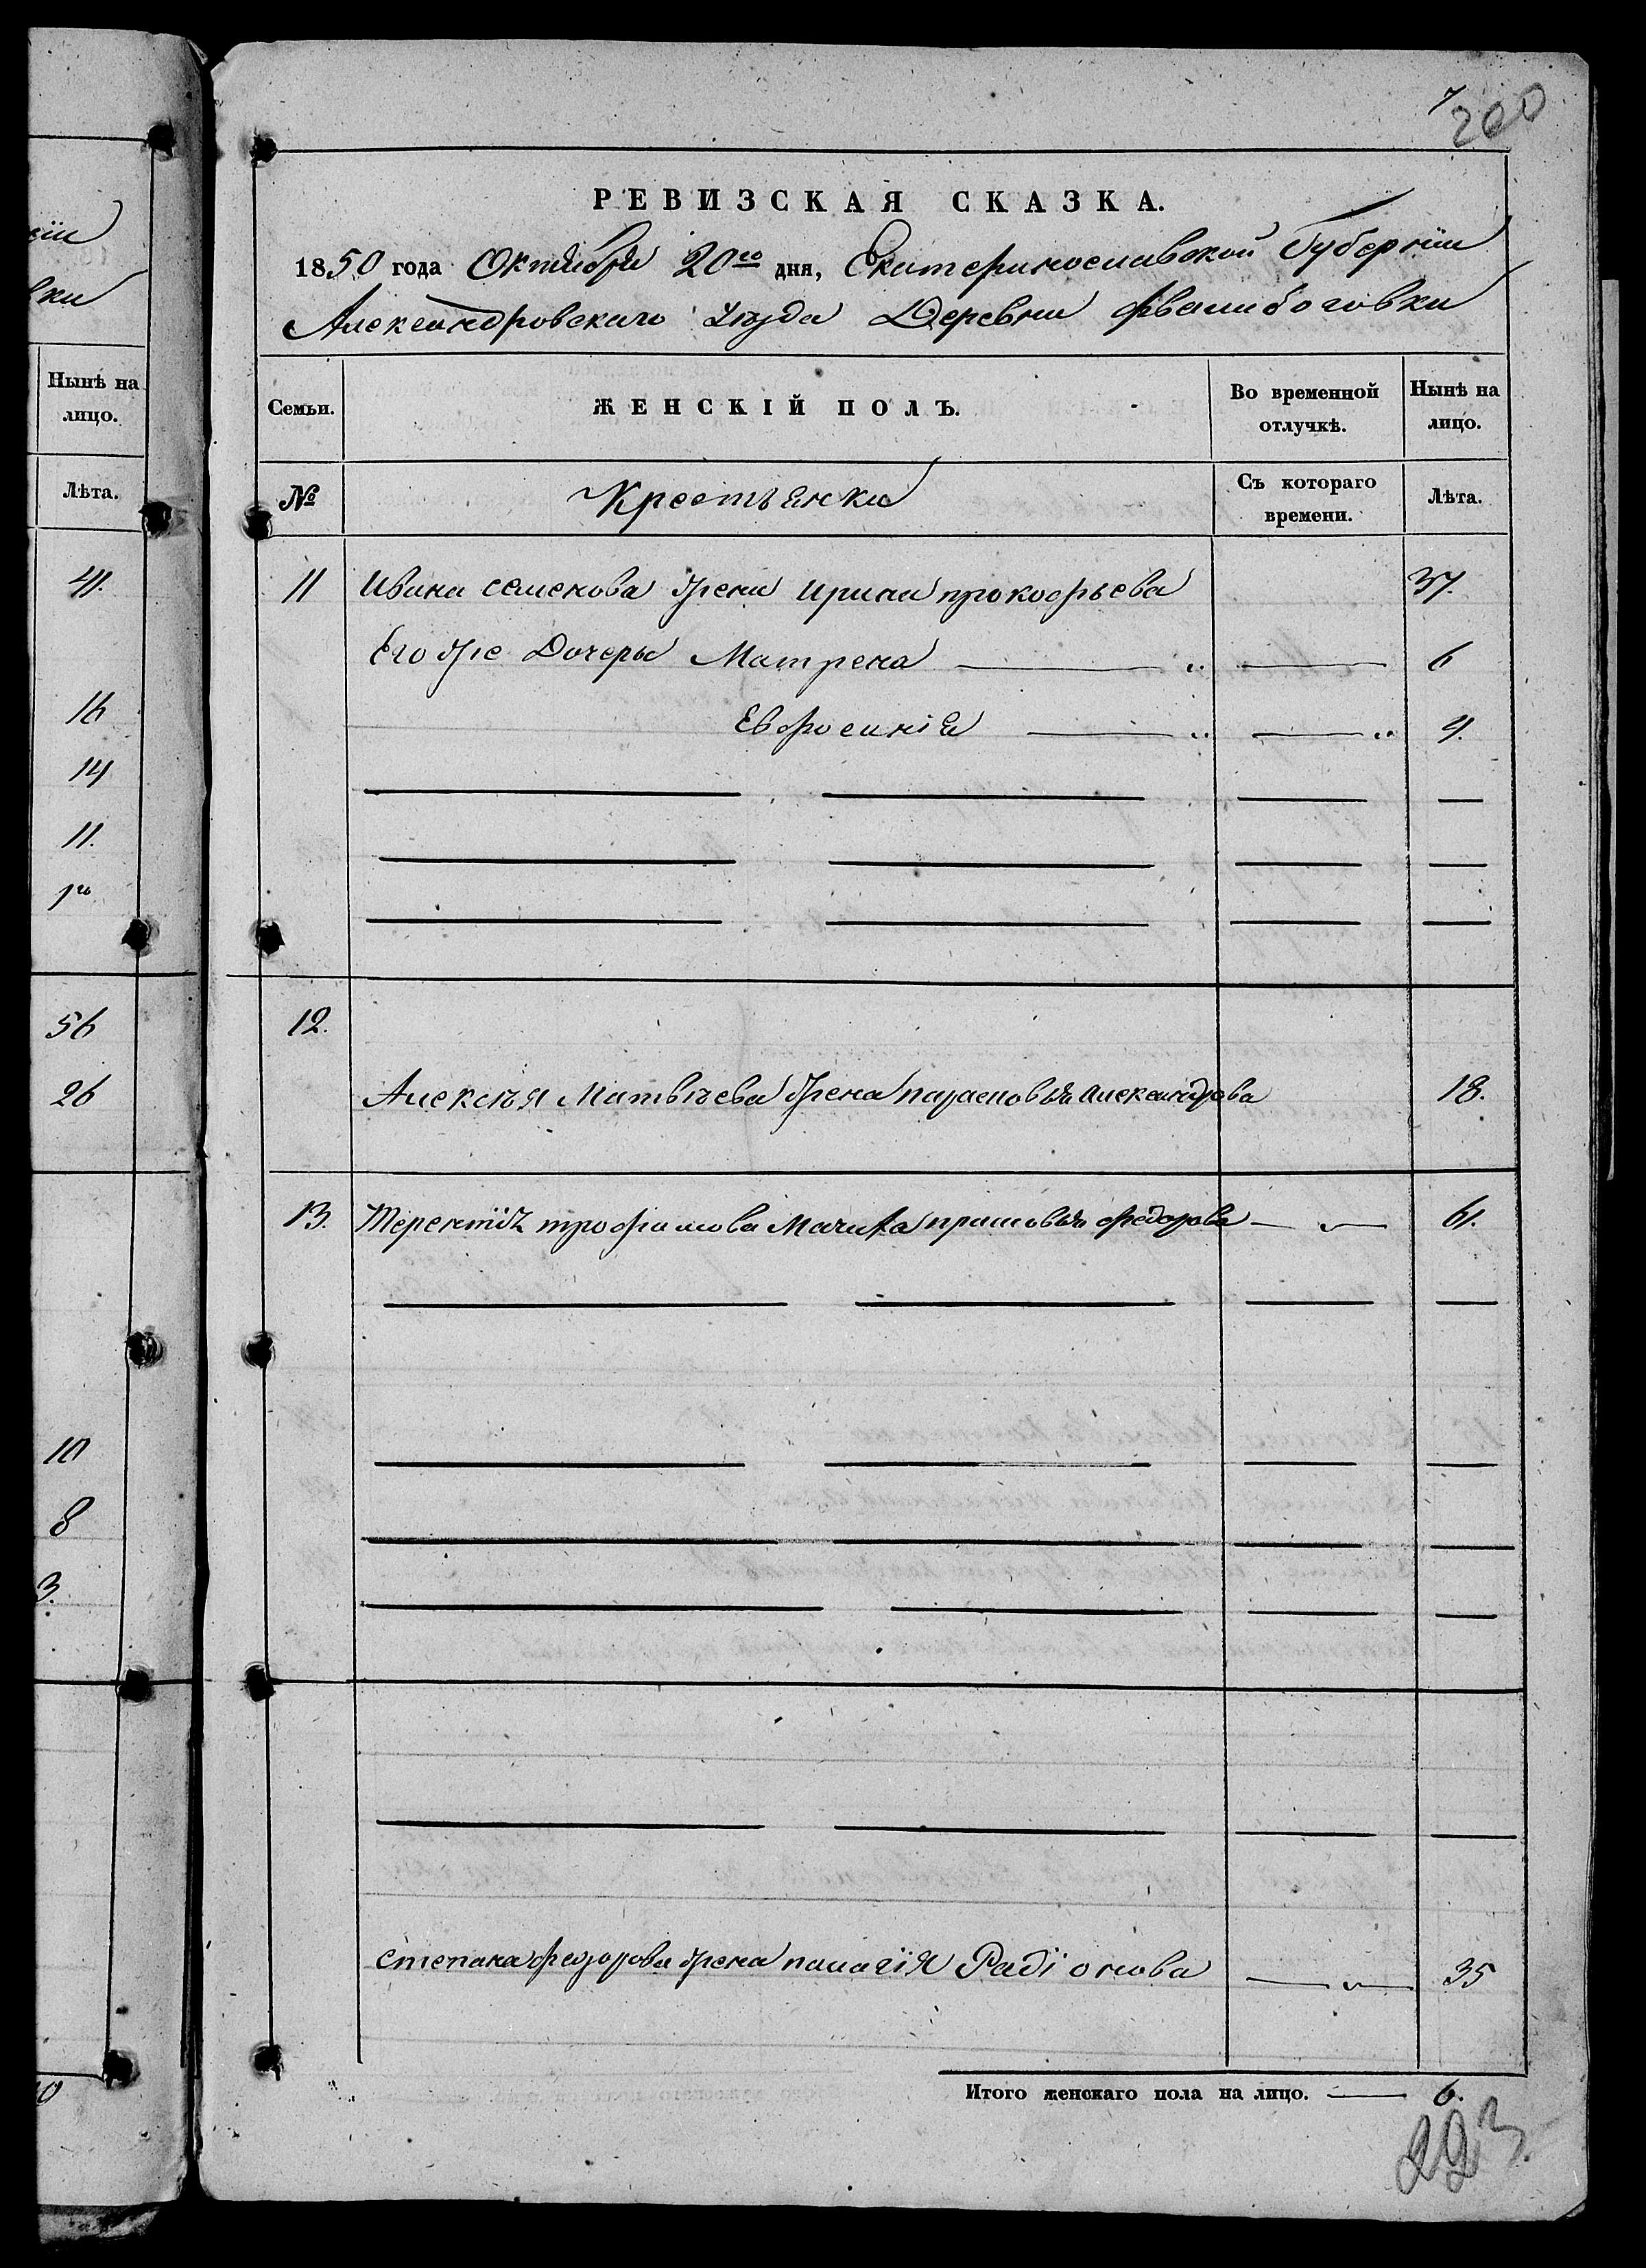 7
200
ціи
вки
Нынѣ на
лицо.
Лѣта.
41.
16
14
11.
1го
56
26
10
8
3.
10
РЕВИЗСКАЯ СКАЗКА.
1850 года Октября 20го дня, Екатеринославской Губерніи
Александровскаго Уѣзда Деревни
Семьи. ЖЕНСКІЙ ПОЛЪ. Во временной отлучкѣ. Нынѣ на лицо.
№ Крестьянки Съ котораго времени. Лѣта.
11 Ивана семенова жена ирина прокофьева 37.
Его же Дочеры Матрена 6
Евфросинія 4.
12.
Алексѣя Матвѣева жена парасковья александрова 18.
13. Терентія трофимова Мачиха прасковья федорова 61.
степана федорова жена палагія Радіонова 35
Итого женскаго пола на лицо. 6.
223